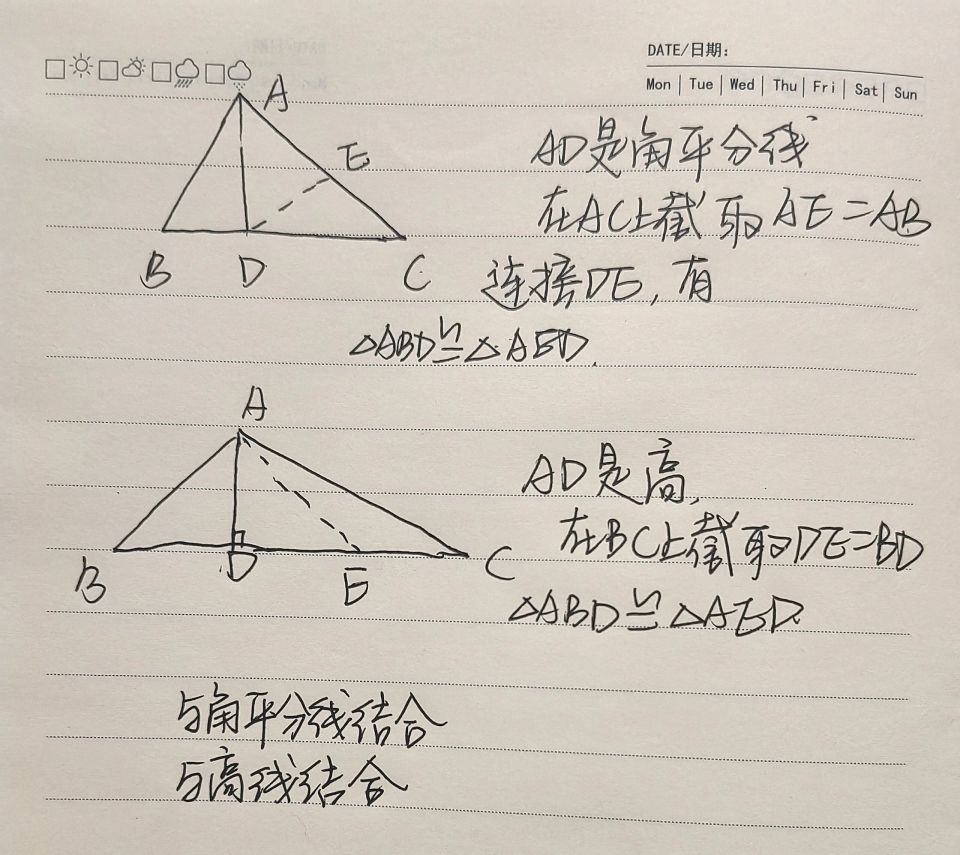 DATE/日期:
Mon Tue Wed Thu Fri Sat Sun
A
E
B D C
AD是角平分线
在AC上截取AE=AB
连接DE,有
△ABD≌△AED.
A
B D E C
AD是高,
在BC上截取DE=BD
△ABD≌△AED
与角平分线结合
与高线结合